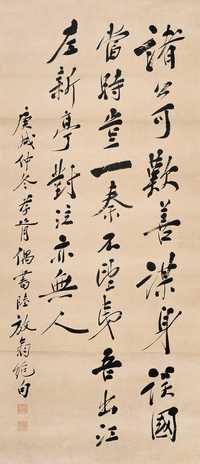 諸公可歎善謀身誤國
當時豈一秦不望夷吾出江
左新亭對泣亦無人
庚戌仲冬偶書陸放翁絕句